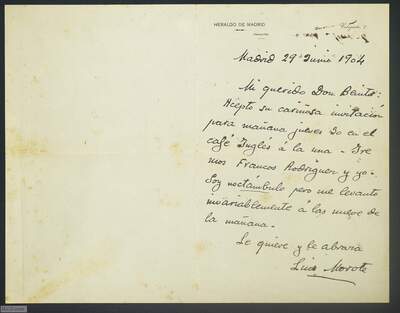 HERALDO DE MADRID
Madrid 29 Junio 1904
Mi querido Don Benito:
Acepto su cariñosa invitación
para mañana jueves 30 en el
café Inglés á la una - Ire
mos Francos Rodriguez y yo.
Soy noctámbulo pero me levanto
invariablemente á las nueve de
la mañana.
Le quiere y le abraza
Luis Morote